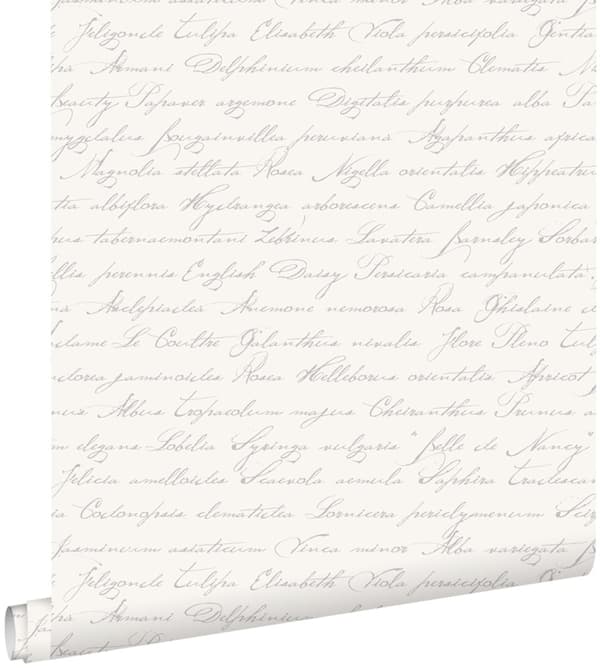 Vinca minor Alba variegata
Feligonde Tulipa Elisabeth Viola persicifolia Gentia
ha Armani Delphinium cheilanthum Clematis N
Beauty Papaver argemone Digitalis purpurea alba Pa
mygdalus Bougainvillea peruviana Agapanthus africa
Magnolia stellata Rosea Nigella orientalis Hippeatru
tia albiflora Hydrangea arborescens Camellia japonica
pus tabernaemontani Zebrinus Lavatera Barnsley Sorbar
llis perennis English Daisy Persicaria campanulata
na Asclepiadea Anemone nemorosa Rosa Ghislaine d
dame Le Coultre Galanthus nivalis Flore Pleno Tul
dorea jaminoides Rosea Helleborus orientalis Apricot
nus Albus tropaeolum majus Cheiranthus Prunus a
m elegans Lobelia Syringa vulgaris "Belle de Nancy"
Felicia amelloides Scaevola aemula Saphira tradescan
ia Codonopsis clematidea Lornicera periclymenum
Jasminum asiaticum Vinca minor Alba variegata
Feligonde Tulipa Elisabeth Viola persicifolia
ha Armani Delphinium
Beauty